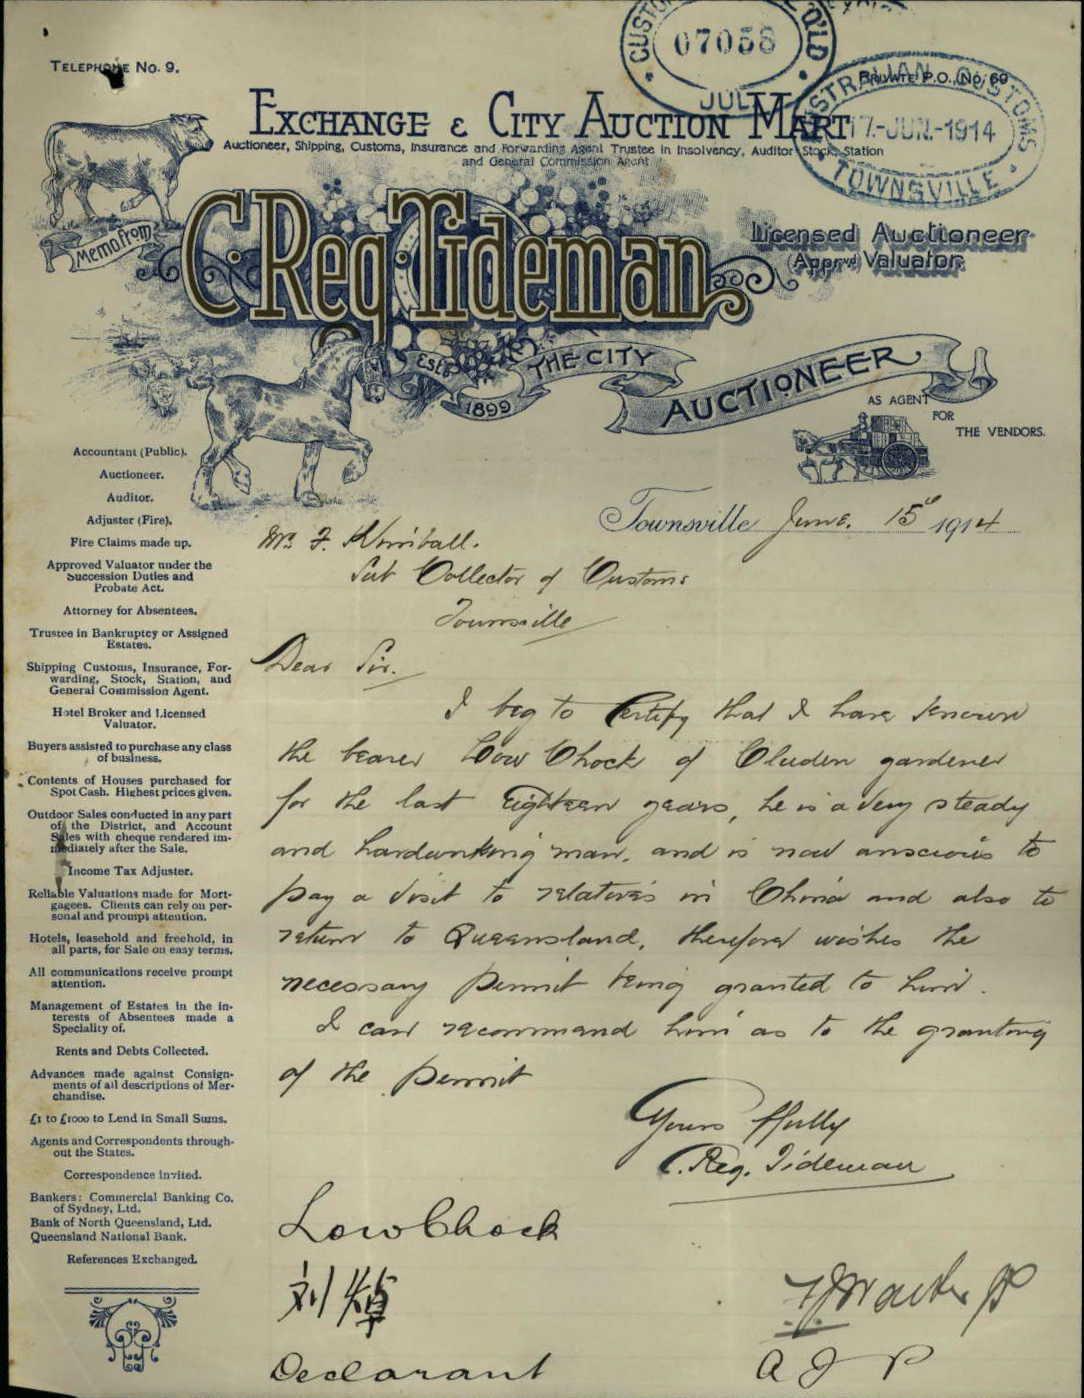 TELEPHONE No. 9.
PRIVATE P.O. No. 69
07058
JUL
AUSTRALIAN CUSTOMS
17-JUN.-1914
TOWNSVILLE
EXCHANGE & CITY AUCTION MART
Auctioneer, Shipping, Customs, Insurance and Forwarding Agent Trustee in Insolvency, Auditor Stock, Station
and General Commission Agent
Memo from
C. Reg Tideman
Licensed Auctioneer
(Apprvd) Valuator
Estd 1899
THE CITY
AUCTIONEER
AS AGENT
FOR
THE VENDORS.
Accountant (Public).
Auctioneer.
Auditor.
Adjuster (Fire).
Fire Claims made up.
Approved Valuator under the
Succession Duties and
Probate Act.
Attorney for Absentees.
Trustee in Bankruptcy or Assigned
Estates.
Shipping Customs, Insurance, For-
warding, Stock, Station, and
General Commission Agent.
Hotel Broker and Licensed
Valuator.
Buyers assisted to purchase any class
of business.
Contents of Houses purchased for
Spot Cash. Highest prices given.
Outdoor Sales conducted in any part
of the District, and Account
Sales with cheque rendered im-
mediately after the Sale.
Income Tax Adjuster.
Reliable Valuations made for Mort-
gagees. Clients can rely on per-
sonal and prompt attention.
Hotels, leasehold and freehold, in
all parts, for Sale on easy terms.
All communications receive prompt
attention.
Management of Estates in the in-
terests of Absentees made a
Speciality of.
Rents and Debts Collected.
Advances made against Consign-
ments of all descriptions of Mer-
chandise.
£1 to £1000 to Lend in Small Sums.
Agents and Correspondents through-
out the States.
Correspondence invited.
Bankers: Commercial Banking Co.
of Sydney, Ltd.
Bank of North Queensland, Ltd.
Queensland National Bank.
References Exchanged.
Townsville June 15th 1914
Mr. F. Kimball.
Sub Collector of Customs
Townsville
Dear Sir.
I beg to Certify that I have known
the bearer Low Chock of Cluden gardener
for the last Eighteen years, he is a very steady
and hardworking man, and is now anxious to
pay a visit to relatives in China and also to
return to Queensland, therefore wishes the
necessary permit being granted to him.
I can recommend him as to the granting
of the permit
Yours ffully
C. Reg. Tideman
Low Chock
刘焯
Declarant
A J P